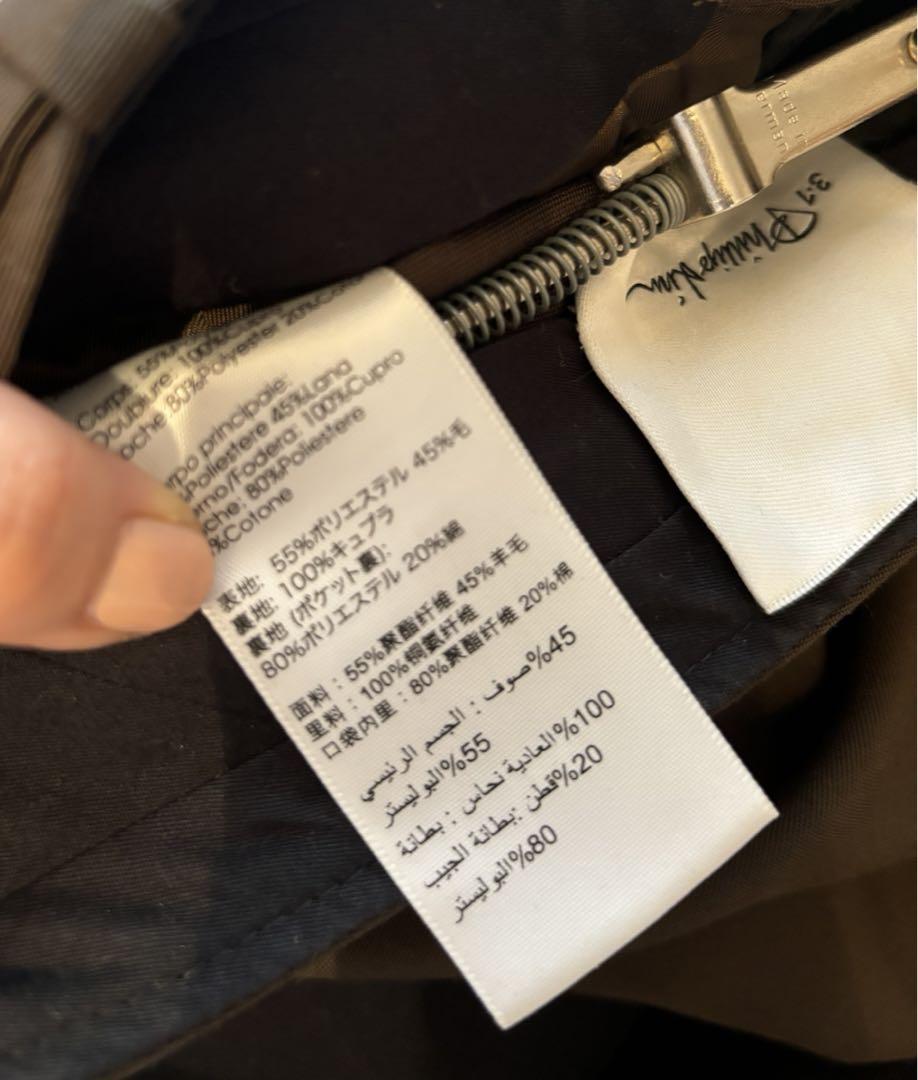 Corps: 55%
Doublure: 100%
Poche 80%Polyester 20%Coton
Corpo principale:
%Poliestere 45%Lana
erno/Fodera: 100%Cupro
che: 80%Poliestere
%Cotone
表地: 55%ポリエステル 45%毛
裏地: 100%キュプラ
裏地 (ポケット裏):
80%ポリエステル 20%綿
面料：55%聚酯纤维 45%羊毛
里料：100%铜氨纤维
口袋内里：80%聚酯纤维 20%棉
45%صوف : الجسم الرئيسي
55%البوليستر
100%العادية نحاس : بطانة
20%قطن :بطانة الجيب
80%البوليستر
3.1
Phillip Lim
Made in
Germany